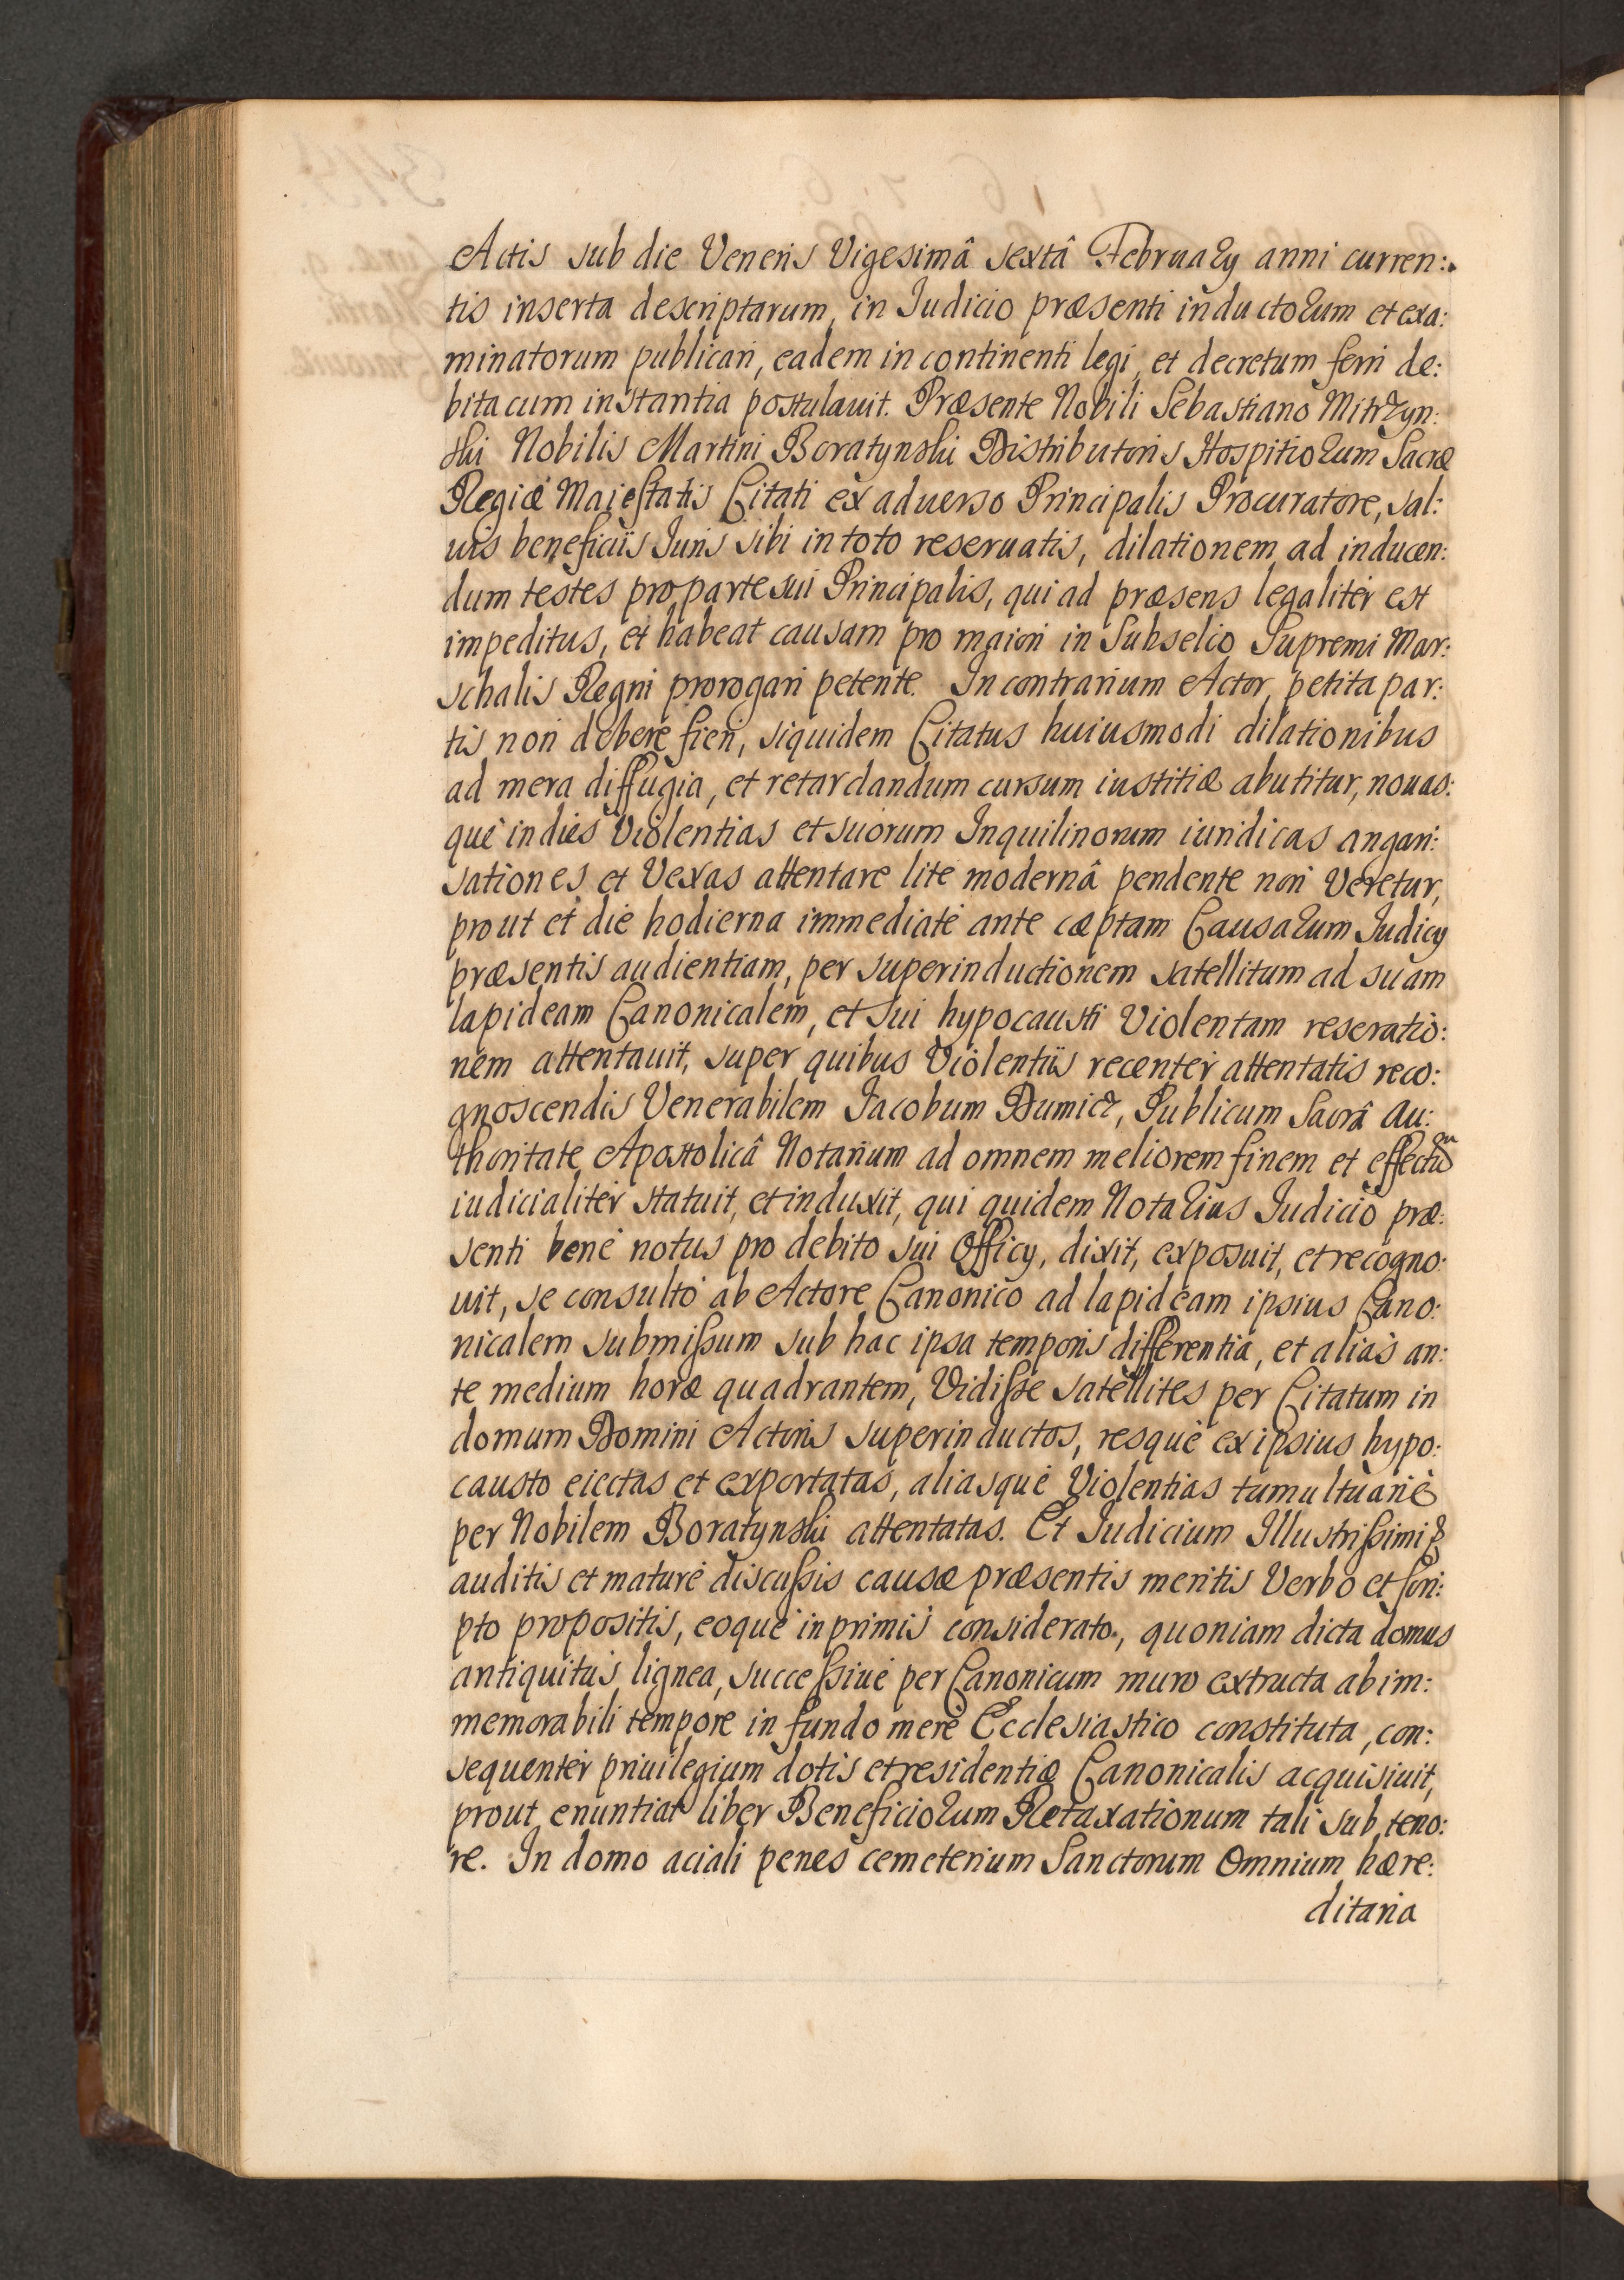 Actis sub die Veneris Vigesimâ sextâ February anni curren:
tis inserta descriptarum, in Judicio præsenti inductorum et exa:
minatorum publicari, eadem in continenti legi, et decretum ferri de:
bita cum instantia postulauit. Præsente Nobili Sebastiano Mitrzyn:
ski Nobilis Martini Boratynski Distributoris Hospitiorum Sacræ
Regiæ Maiestatis Citati ex aduerso Principalis Procuratore, sal:
uis beneficiis Juris sibi in toto reseruatis, dilationem ad inducen:
dum testes pro parte sui Principalis, qui ad præsens legaliter est
impeditus, et habeat causam pro maiori in Subselio Supremi Mar:
schalis Regni prorogari petente. In contrarium Actor, petita par:
tis non debere fieri, siquidem Citatus huiusmodi dilationibus
ad mera diffugia, et retardandum cursum iustitiæ abutitur, nouas:
què indies Violentias et suorum Inquilinorum iuridicas angari:
sationes et Vexas attentare lite modernâ pendente non Veretur,
prout et die hodierna immediatè ante cæptam Causarum Judicy
præsentis audientiam, per superinductionem satellitum ad suam
lapideam Canonicalem, et sui hypocausti Violentam reseratio:
nem attentauit, super quibus Violentiis recenter attentatis reco:
gnoscendis Venerabilem Jacobum Dumicz, Publicum Sacrâ au:
thoritate Apostolicâ Notarium ad omnem meliorem finem et effectũ
iudicialiter statuit, et induxit, qui quidem Notarius Judicio præ:
senti benè notus pro debito sui Officy, dixit, exposuit, et recogno:
uit, se consultò ab Actore Canonico ad lapideam ipsius Cano:
nicalem submissum sub hac ipsa temporis differentiâ, et aliàs an:
te medium horæ quadrantem, Vidisse satellites per Citatum in
domum Domini Actoris superinductos, resquè ex ipsius hypo:
causto eiectas et exportatas, aliasquè Violentias tumultuariè
per Nobilem Boratynski attentatas. Et Judicium Illustrissimi
auditis et maturè discussis causæ præsentis meritis Verbo et scri:
pto propositis, eoquè inprimis considerato, quoniam dicta domus
antiquitùs lignea, successiuè per Canonicum muro extructa ab im:
memorabili tempore in fundo merè Ecclesiastico constituta, con:
sequenter priuilegium dotis et residentiæ Canonicalis acquisiuit,
prout enuntiat liber Beneficiorum Retaxationum tali sub teno:
re. In domo aciali penes cemeterium Sanctorum Omnium hære:
ditaria